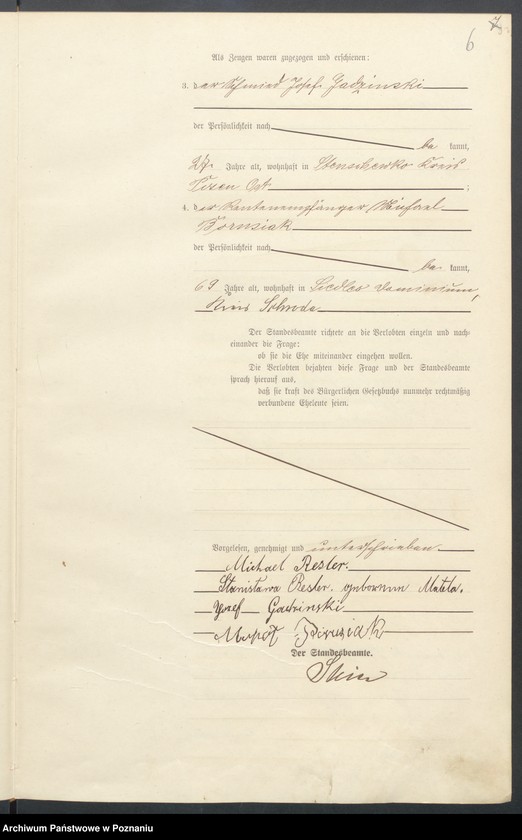 6
Als Zeugen waren zugezogen und erschienen:
3. der Schmied Josef Gadzinski
der Persönlichkeit nach
be kannt,
27 Jahre alt, wohnhaft in Stenschewko Kreis
Posen Ost ;
4. der Rentenempfänger Michael
Borusiak
der Persönlichkeit nach
be kannt,
69 Jahre alt, wohnhaft in Siedlec Dominium,
Kreis Schroda
Der Standesbeamte richtete an die Verlobten einzeln und nach-
einander die Frage:
ob sie die Ehe miteinander eingehen wollen.
Die Verlobten bejahten diese Frage und der Standesbeamte
sprach hierauf aus,
daß sie kraft des Bürgerlichen Gesetzbuchs nunmehr rechtmäßig
verbundene Eheleute seien.
Vorgelesen, genehmigt und unterschrieben
Michael Resler.
Stanisława Resler. geborene Matela.
Yozef Gadzinski
Borusiak
Der Standesbeamte.
Stein
Archiwum Państwowe w Poznaniu